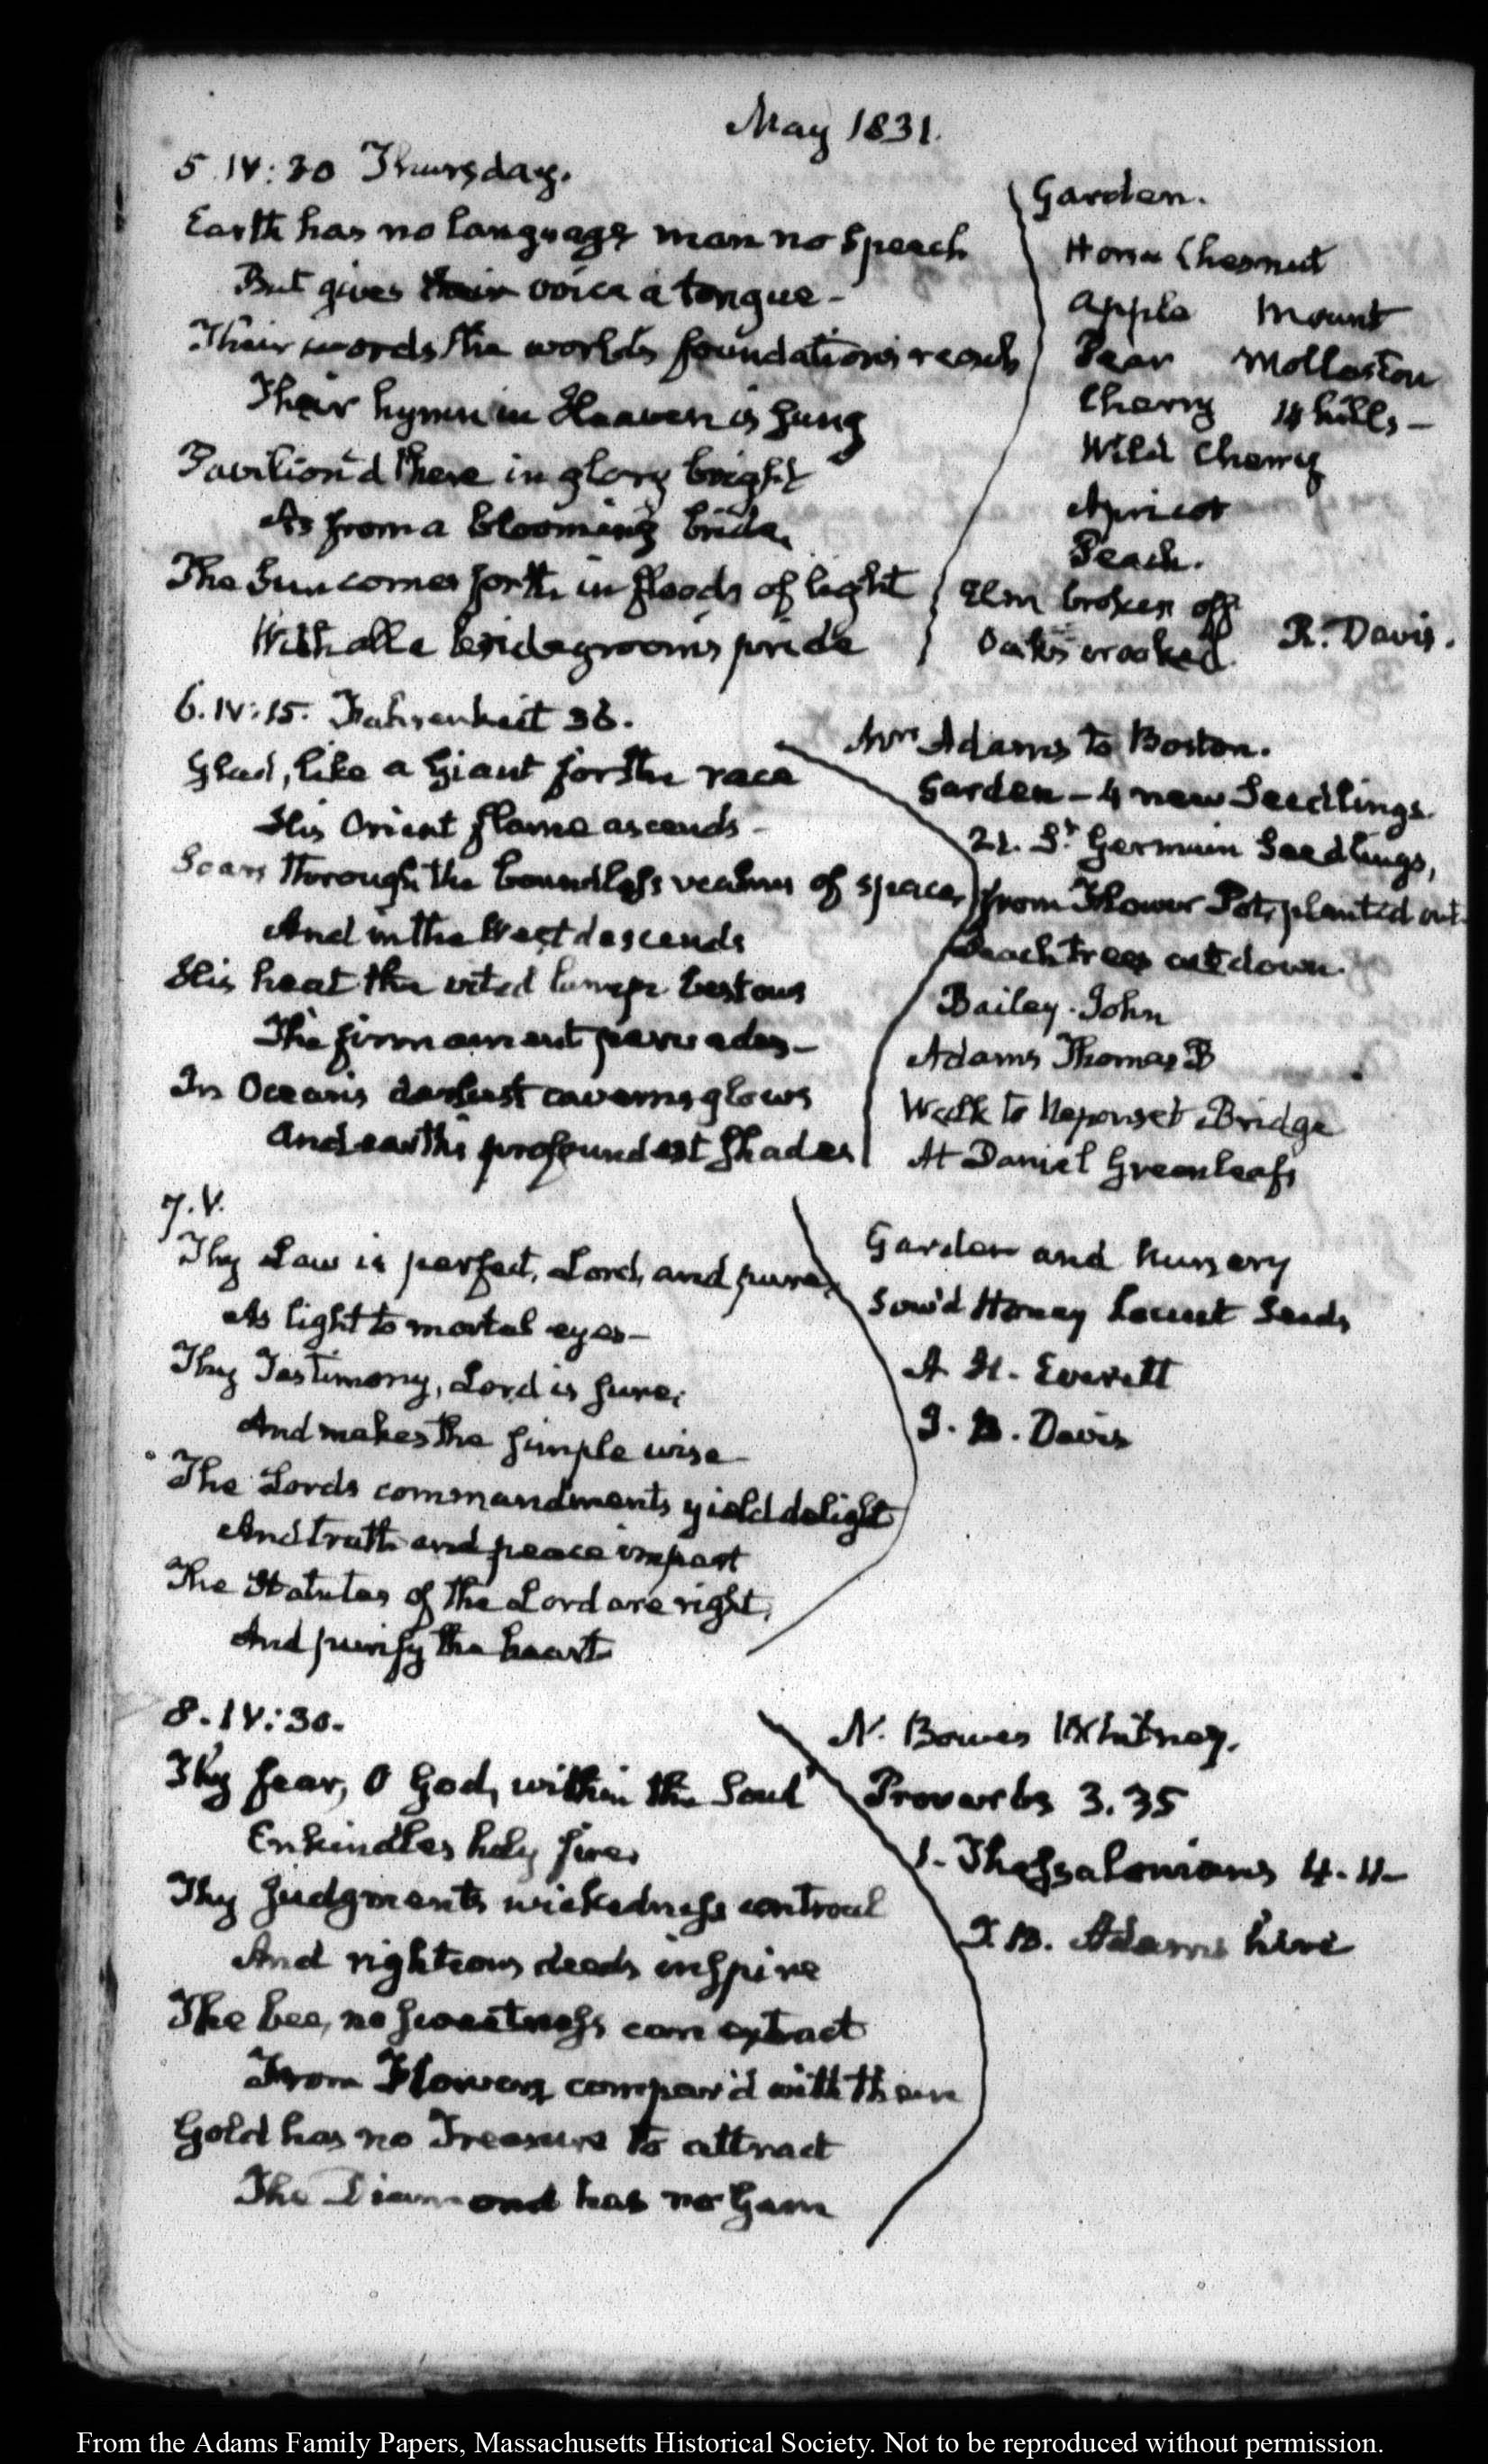 May 1831.
5. IV:30 Thursday.
Earth has no language man no speech
But gives their voice a tongue -
Their words the world's foundations reach
Their hymn in Heaven is sung
Pavilion'd there in glory bright
As from a blooming bride,
The Sun comes forth in floods of light
With all a bridegroom's pride
Garden.
Horse Chesnut
Apple Mount
Pear Wollaston
Cherry 14 hills -
Wild Cherry
Apricot
Peach.
Elm broken off
Oaks crooked
R. Davis.
6. IV:15. Fahrenheit 36.
Glad, like a Giant for the race
His Orient flame ascends -
Soars through the boundless realms of space,
And in the West descends
His heat the vital lamp bestows
The firmament pervades -
In Ocean's darkest caverns glows
And earth's profoundest shades
Mrs Adams to Boston.
Garden - 4 new Seedlings.
21. St Germain Seedlings,
from Flower Pots, planted out
Peach trees cut down.
Bailey. John
Adams Thomas B
Walk to Neponset Bridge
At Daniel Greenleafs
7. V.
Thy Law is perfect, Lord, and pure,
As light to mortal eyes -
Thy Testimony, Lord is sure;
And makes the simple wise -
The Lords commandments yield delight
And truth and peace impart
The Statutes of the Lord are right,
And purify the heart
Garden and Nursery
Sow'd Honey Locust Seeds
A. H. Everett
J. B. Davis
8. IV:30.
Thy fear, O God, within the Soul
Enkindles holy fire,
Thy judgments wickedness controul
And righteous deeds inspire
The bee, no sweetness can extract
From Flowers compar'd with them
Gold has no Treasure to attract
The Diamond has no Gem
N. Bowes Whitney.
Proverbs 3. 35
1. Thessalonians 4. 11 -
T. B. Adams here
From the Adams Family Papers, Massachusetts Historical Society. Not to be reproduced without permission.